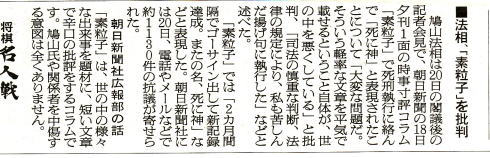 ■法相、「素粒子」を批判
鳩山法相は20日の閣議後の
記者会見で、朝日新聞の18日
夕刊1面の時事寸評コラム
「素粒子」で死刑執行に絡ん
で「死に神」と表現されたこ
とについて「大変な問題だ。
そういう軽率な文章を平気で
載せるということ自体が、世
の中を悪くしている」と批
判。「司法の慎重な判断、法
律の規定により、私も苦しん
だ揚げ句に執行した」などと
述べた。
「素粒子」では「2カ月間
隔でゴーサイン出して新記録
達成。またの名、死に神」な
どと表現した。朝日新聞社に
は20日、電話やメールなどで
約1130件の抗議が寄せら
れた。
朝日新聞社広報部の話
「素粒子」は、世の中の様々
な出来事を題材に、短い文章
で辛口の批評をするコラムで
す。鳩山氏や関係者を中傷す
る意図は全くありません。
将棋 名人戦